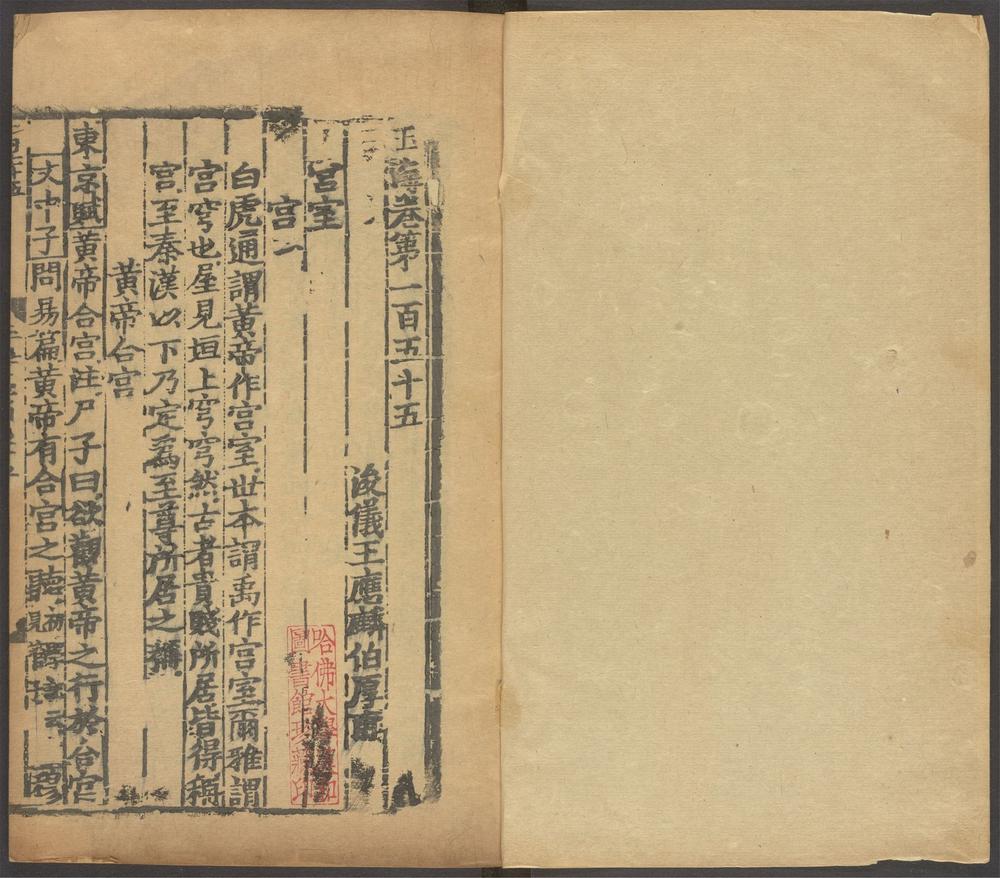 玉海卷第一百五十五
浚儀王應麟伯厚甫
宮室
宮一
白虎通謂黃帝作宮室世本謂禹作宮室爾雅謂
宮穹也屋見垣上穹穹然古者貴賤所居皆得稱
宮至秦漢以下乃定爲至尊所居之稱
黃帝合宮
東京賦黃帝合宮註尸子曰欲觀黃帝之行於合宮
文中子問易篇黃帝有合宮之聽
哈佛大學
圖書館珍藏印